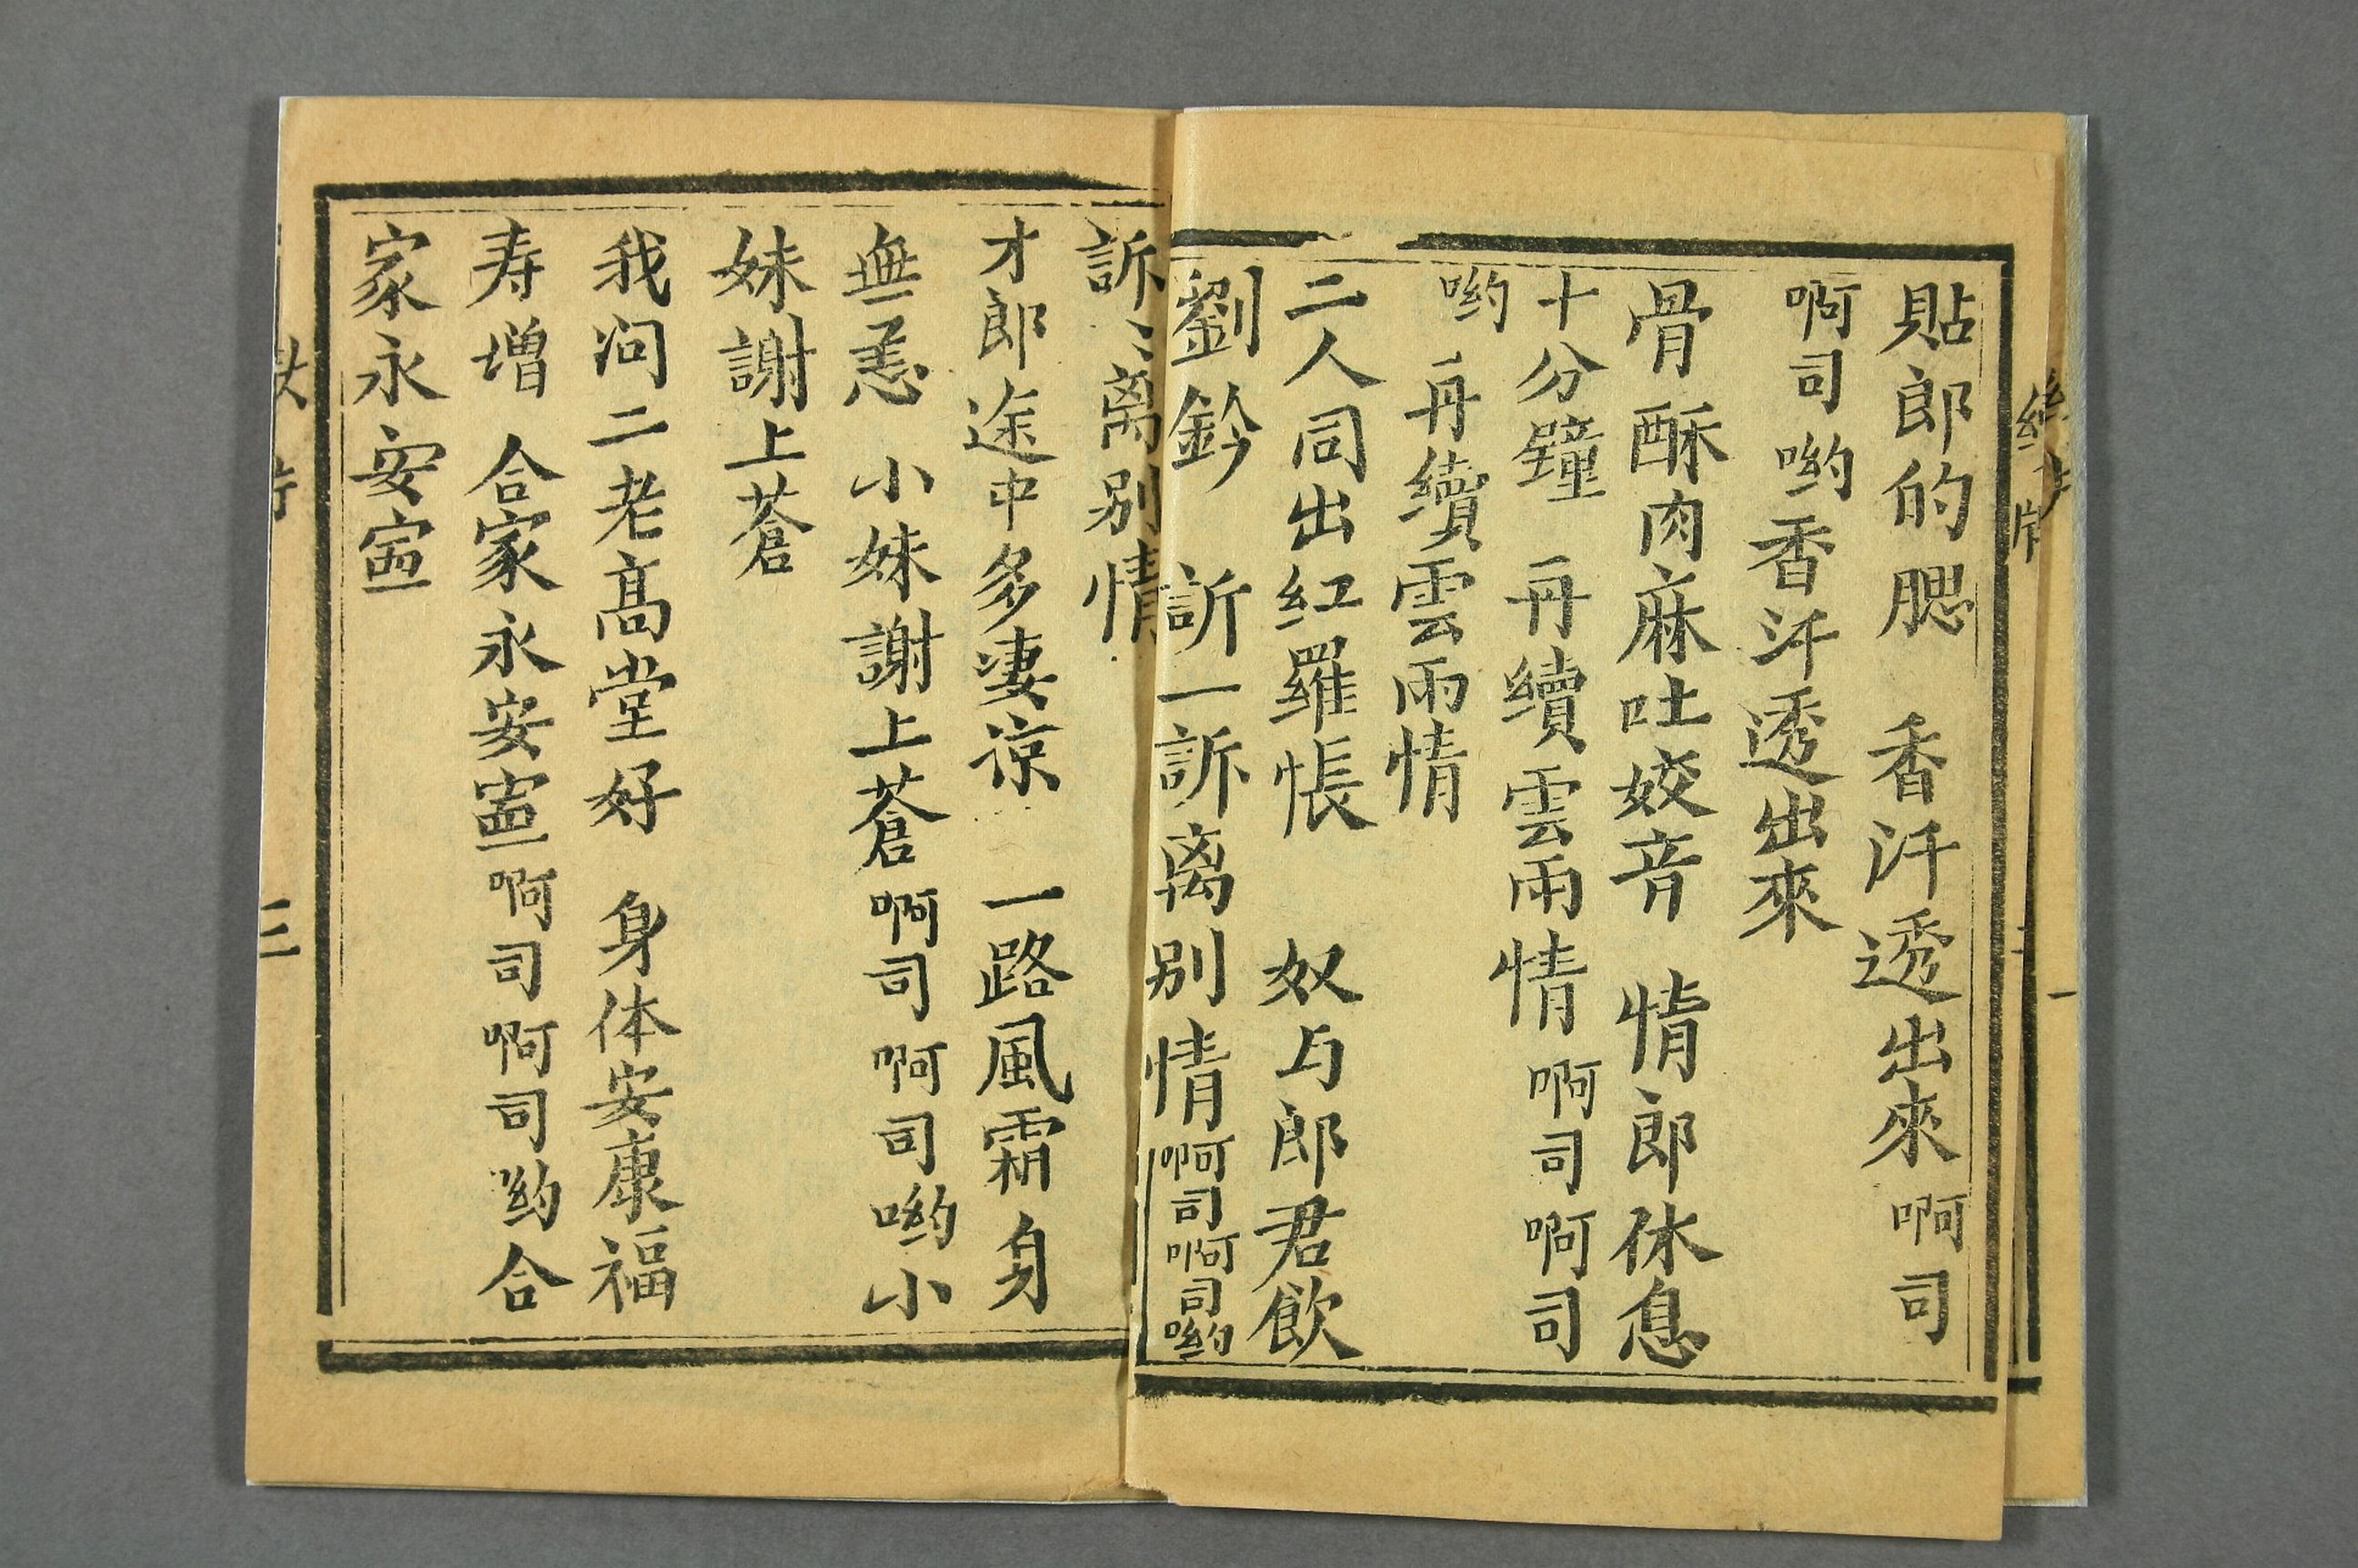 貼郎的腮　香汗透出來啊司
啊司哟香汗透出來
骨酥肉麻吐姣音　情郎休息
十分鐘　再續雲雨情啊司啊司
哟　再續雲雨情
二人同出紅羅帳　奴与郎君飲
劉鈴　訢一訴离别情啊司啊司哟
訴〻离别情
才郎途中多淒涼　一路風霜身
無恙　小妹謝上蒼啊司啊司哟小
妹謝上蒼
我问二老高堂好　身体安康福
寿增　合家永安寍啊司啊司哟合
家永安寍
三